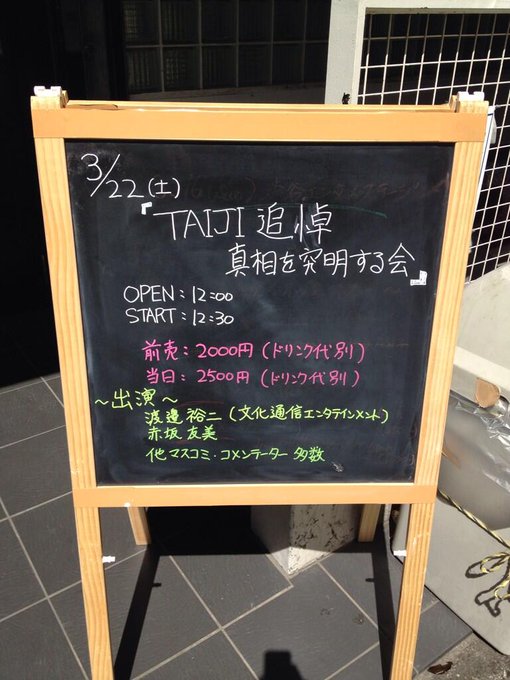 3/22(土)
「TAIJI 追悼
真相を究明する会」
OPEN:12:00
START:12:30
前売:2000円(ドリンク代別)
当日:2500円(ドリンク代別)
～出演～
渡邊 裕二(文化通信エンタテインメント)
赤坂 友美
他マスコミ・コメンテーター 多数